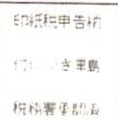 印紙税申告納
付につき
税務署承認済